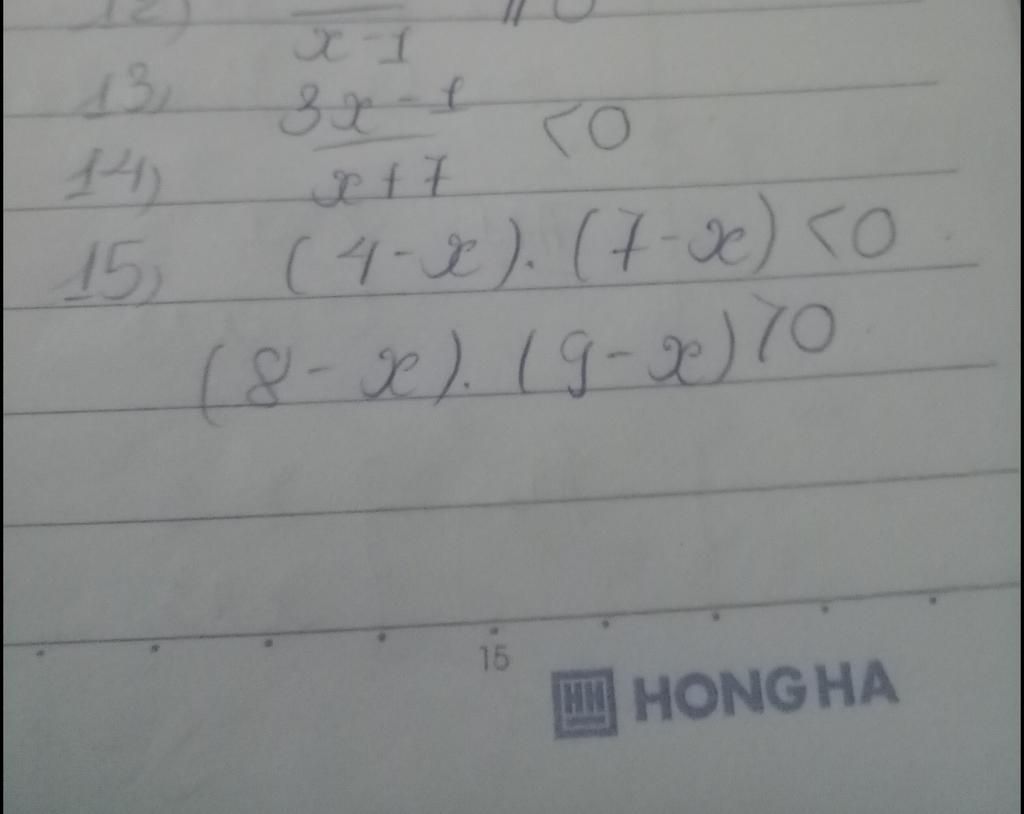 12)
x-1
13, 3x-1 <0
14, x+7
15, (4-x).(7-x)<0
(8-x).(9-x)>0
15
HH HONG HA